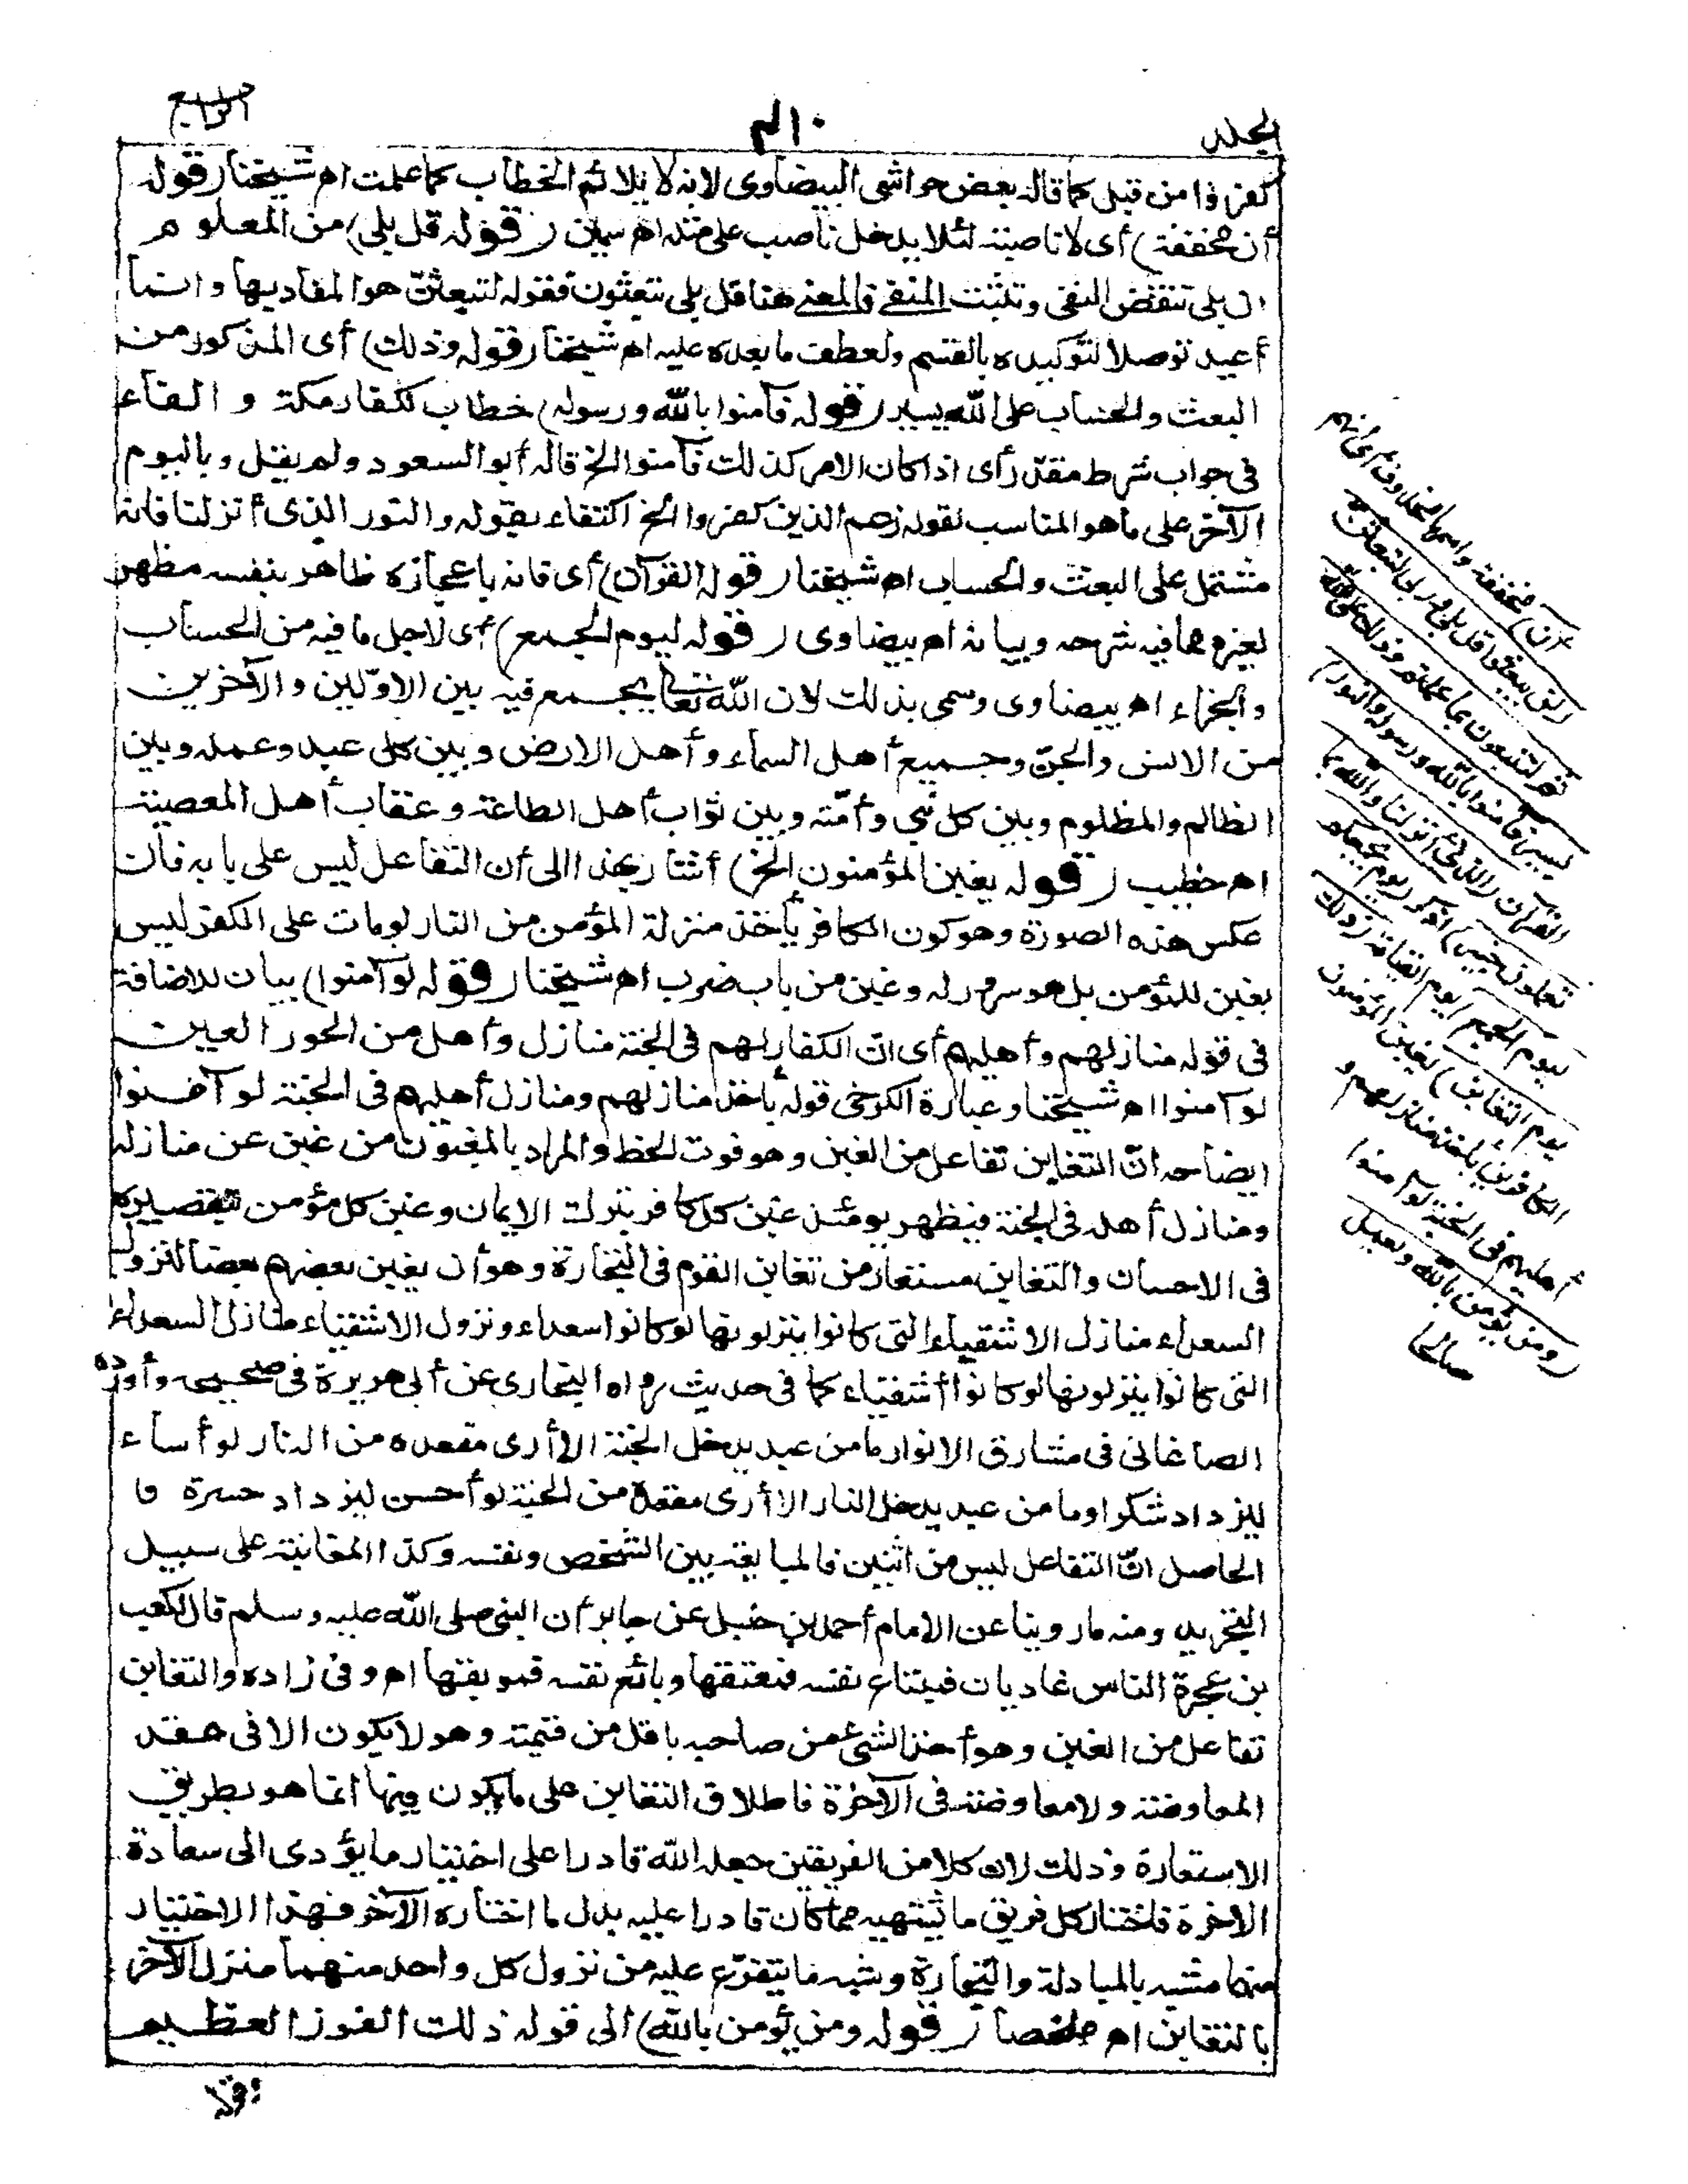 الجلد
الرابع
كفروا من قبل كما قاله بعض حواشى البيضاوى لانه لا يلائم الخطاب كما علمت اه شيخنا (قوله
أن مخففة) أى لا ناصبة لئلا يدخل ناصب على مثله اه سمين (قوله قل بلى) من المعلوم
ان بلى تنقض النفى وتثبت المنفى فالمعنى هنا قل بلى تبعثون فقوله لتبعثن هو المفاد بها وانما
أعيد توصلا لتوكيده بالقسم ولعطف ما بعده عليه اه شيخنا (قوله وذلك) أى المذكور من
البعث والحساب على الله يسير (قوله فآمنوا بالله ورسوله) خطاب لكفار مكة و الفاء
فى جواب شرط مقدر أى اذا كان الامر كذلك فآمنوا الخ قاله أبو السعود ولم يقل وباليوم
الآخر على ما هو المناسب لقوله زعم الذين كفروا الخ اكتفاء بقوله والنور الذى أنزلنا فانه
مشتمل على البعث والحساب اه شيخنا (قوله القرآن) أى فانه باعجازه ظاهر بنفسه مظهر
لغيره مما فيه شرحه وبيانه اه بيضاوى (قوله ليوم الجمع) أى لاجل ما فيه من الحساب
والجزاء اه بيضاوى وسمى بذلك لان الله تعالى يجمع فيه بين الاولين والآخرين
من الانس والجن وجميع أهل السماء وأهل الارض وبين كل عبد وعمله وبين
الظالم والمظلوم وبين كل نبي وأمته وبين ثواب أهل الطاعة وعقاب أهل المعصية
اه خطيب (قوله يغبن المؤمنون الخ) أشار بهذا الى أن التفاعل ليس على بابه فان
عكس هذه الصورة وهو كون الكافر يأخذ منزلة المؤمن من النار لو مات على الكفر ليس
بغبن للمؤمن بل هو سرور له وغبن من باب ضرب اه شيخنا (قوله لو آمنوا) بيان للاضافة
فى قوله منازلهم وأهليهم أى ان الكفار لهم فى الجنة منازل وأهل من الحور العين
لو آمنوا اه شيخنا وعبارة الكرخى قوله بأخذ منازلهم ومنازل أهليهم فى الجنة لو آمنوا
ايضاحه ان التغابن تفاعل من الغبن وهو فوت الحظ والمراد بالمغبون من غبن عن منازله
ومنازل أهله فى الجنة فيظهر يومئذ غبن كل كافر بترك الايمان وغبن كل مؤمن بتقصيره
فى الاحسان والتغابن مستعار من تغابن القوم فى التجارة وهو أن يغبن بعضهم بعضا لنزول
السعداء منازل الاشقياء التى كانوا ينزلونها لو كانوا سعداء ونزول الاشقياء منازل السعداء
التى كانوا ينزلونها لو كانوا أشقياء كما فى حديث رواه البخارى عن أبى هريرة فى صحيحه وأورده
الصاغانى فى مشارق الانوار ما من عبد يدخل الجنة الا أرى مقعده من النار لو أساء
ليزداد شكرا وما من عبد يدخل النار الا أرى مقعده من الجنة لو أحسن ليزداد حسرة فا
الحاصل ان التفاعل ليس من اثنين فالمبايعة بين الشخص ونفسه وكذا المغابنة على سبيل
التجريد ومنه ما روينا عن الامام أحمد بن حنبل عن جابر أن النبى صلى الله عليه وسلم قال لكعب
بن عجرة الناس غاديان فمبتاع نفسه فمعتقها وبائع نفسه فموبقها اه وفى زاده والتغابن
تفاعل من الغبن وهو أخذ الشئ من صاحبه باقل من قيمته وهو لا يكون الا فى عقد
المعاوضة ولا معاوضة فى الآخرة فاطلاق التغابن على ما يكون فيها انما هو بطريق
الاستعارة وذلك لان كلا من الفريقين جعله الله قادرا على اختيار ما يؤدى الى سعادة
الآخرة فاختار كل فريق ما يشتهيه مما كان قادرا عليه بدل ما اختاره الآخر فهذا الاختيار
منهما مشبه بالمبادلة والتجارة وشبه ما يتفرع عليه من نزول كل واحد منهما منزل الآخر
بالتغابن اه ملخصا (قوله ومن يؤمن بالله) الى قوله ذلك الفوز العظيم
أن) مخففة واسمها محذوف أى انهم
(لن يبعثوا قل بلى وربى لتبعثن
ثم لتنبؤن بما عملتم وذلك على الله
يسير فآمنوا بالله ورسوله والنور)
القرآن (الذى أنزلنا والله بما
تعملون خبير) اذكر (يوم يجمعكم
ليوم الجمع) يوم القيامة (ذلك
يوم التغابن) يغبن المؤمنون
الكافرين بأخذ منازلهم و
أهليهم فى الجنة لو آمنوا
(ومن يؤمن بالله ويعمل
صالحا